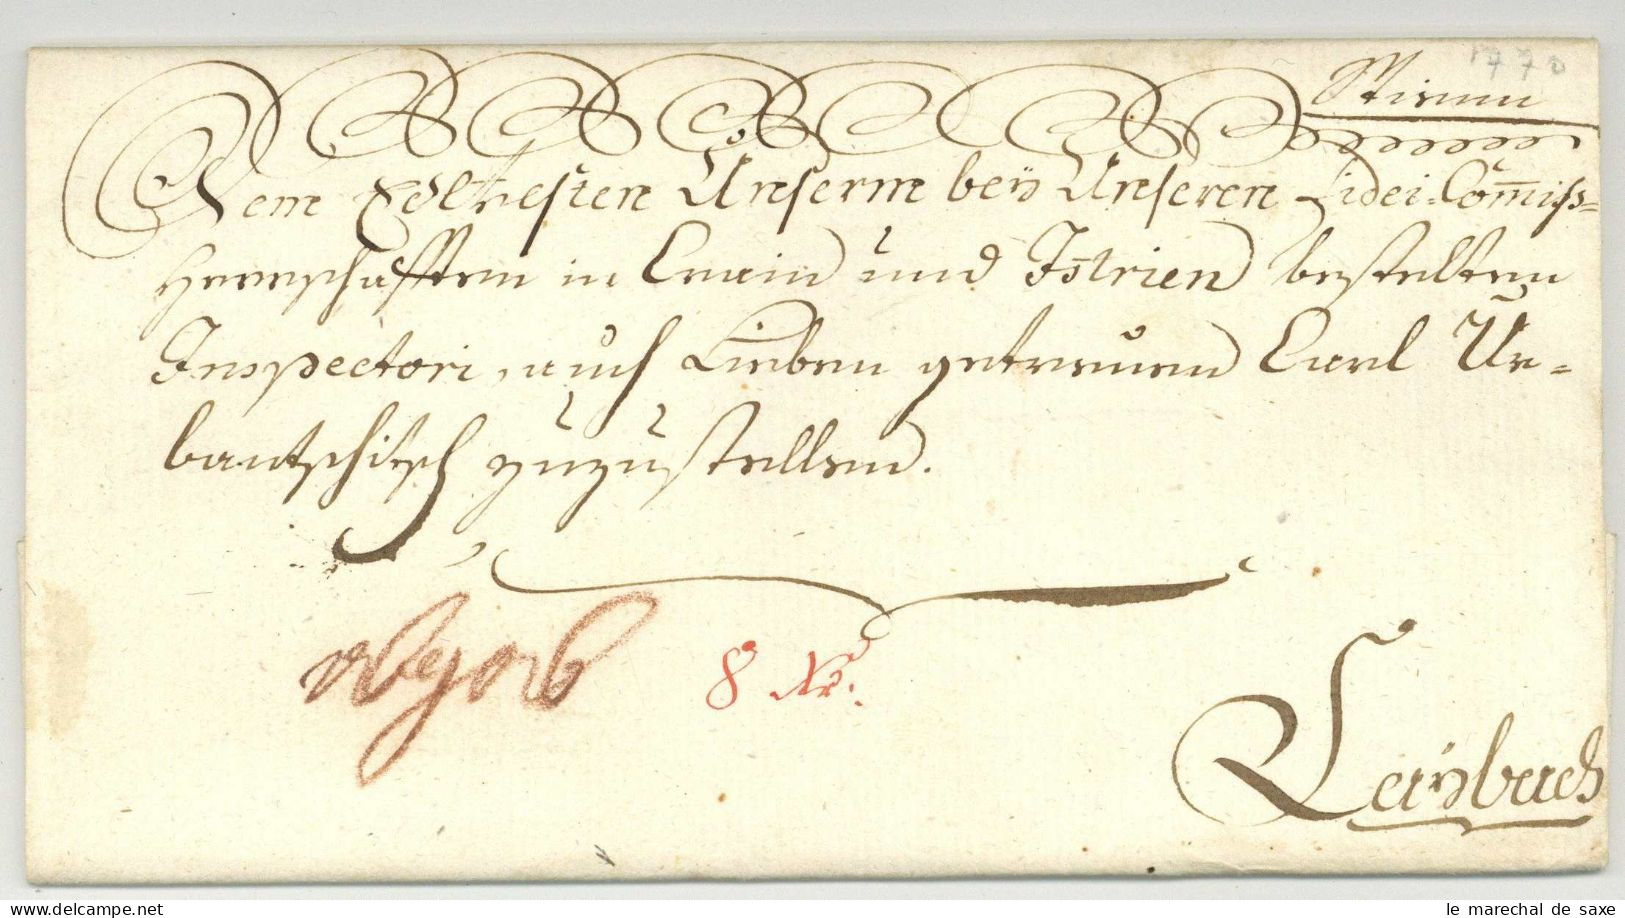 1770
Wienn
Dem Edlvesten Unserm beÿ Unseren Fidei-Com̅iss=
Herrschafften in Crain und Istrien bestelten
Inspectori, auch Lieben getreuen Carl Ur=
bantschitsch zuzustellen.
8 Xr.
Laÿbach
le marechal de saxe